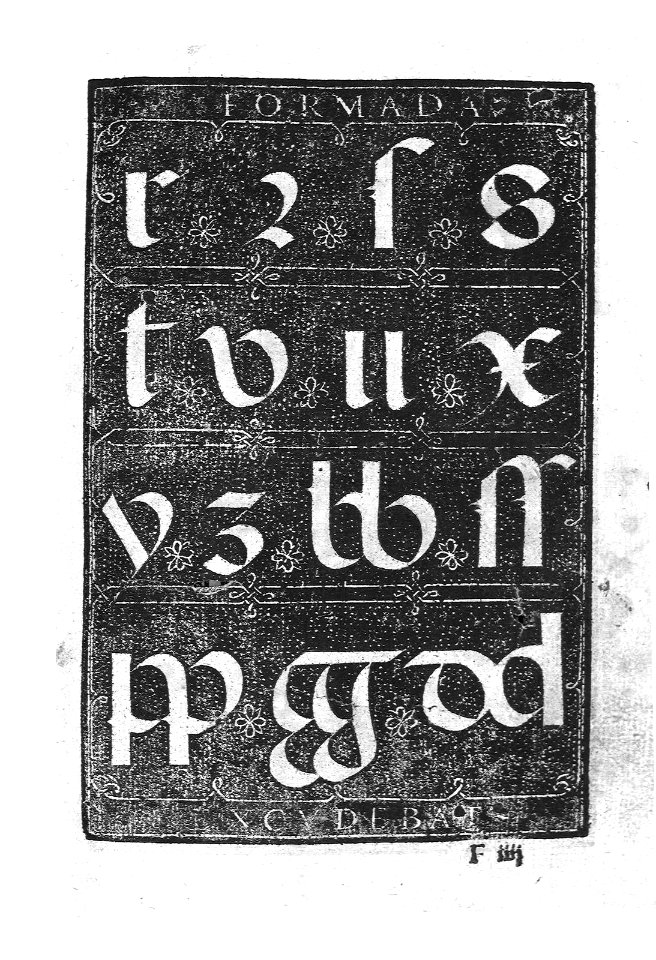 FORMADA
r ꝛ ſ s
t v u x
v ʒ bb ſſ
pp gg dd
EXCVDEBAT
F iiij